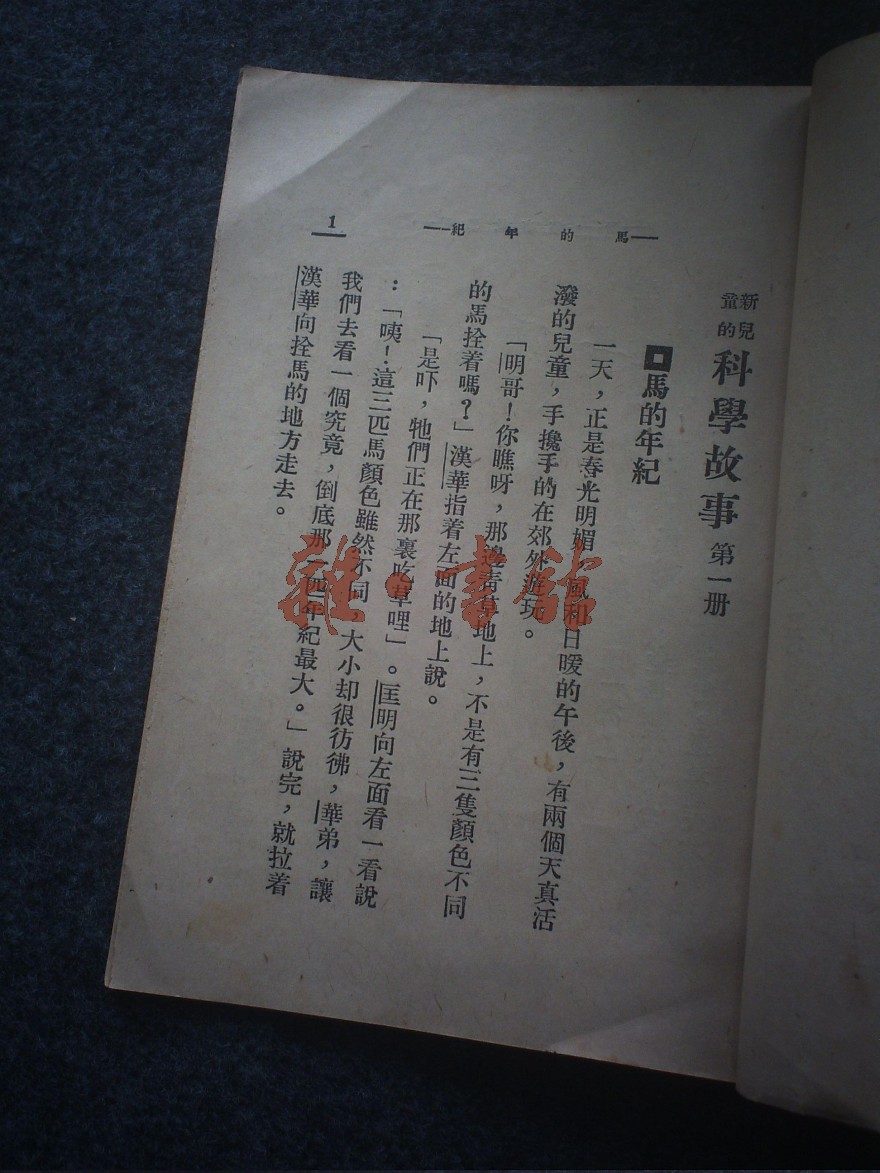 新兒童的 科學故事 第一册
馬的年紀
一天，正是春光明媚，風和日暖的午後，有兩個天真活
潑的兒童，手攙手的在郊外遊玩。
「明哥！你瞧呀，那邊靑草地上，不是有三隻顏色不同
的馬拴着嗎？」漢華指着左面的地上說。
「是吓，牠們正在那裏吃草哩」。匡明向左面看一看說
：「咦！這三匹馬顏色雖然不同，大小却很彷彿，華弟，讓
我們去看一個究竟，倒底那一匹年紀最大。」說完，就拉着
漢華向拴馬的地方走去。
馬的年紀
1
雜·書館